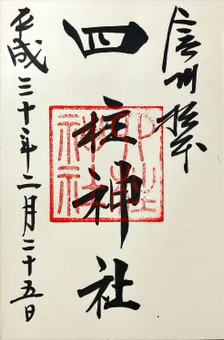 信州松本
四柱神社
平成三十年二月二十五日